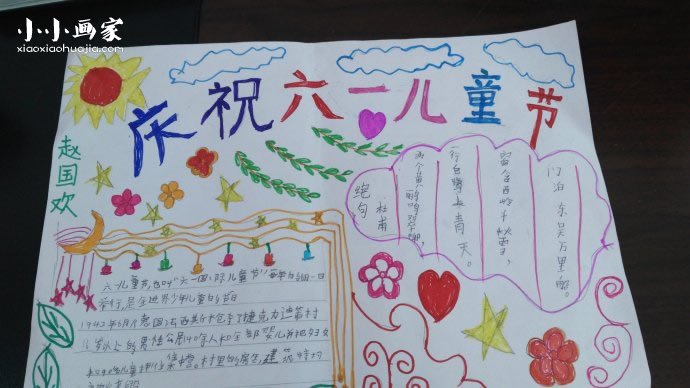 小小画家
xiaoxiaohuajia.com
庆祝六一儿童节
赵国欢
绝句
杜甫
两个黄鹂鸣翠柳,
一行白鹭上青天。
窗含西岭千秋雪,
门泊东吴万里船。
六一儿童节,也叫"六一国际儿童节"每年六月一日
举行,是全世界少年儿童的节日
1942年6月 德国法西斯 包 捷克 村
16岁以上的男性公民140 人和全部婴儿 把妇女
和 儿童押往集营。村里的房舍,建筑